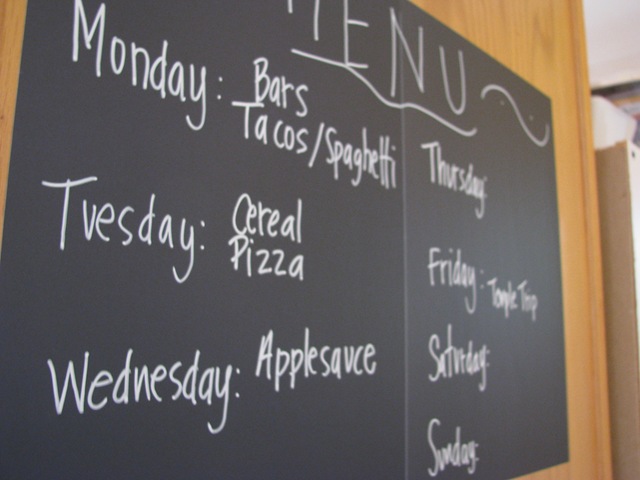 MENU
Monday: Bars
Tacos/Spaghetti
Tuesday: Cereal
Pizza
Wednesday: Applesauce
Thursday:
Friday: Temple Trip
Saturday:
Sunday: